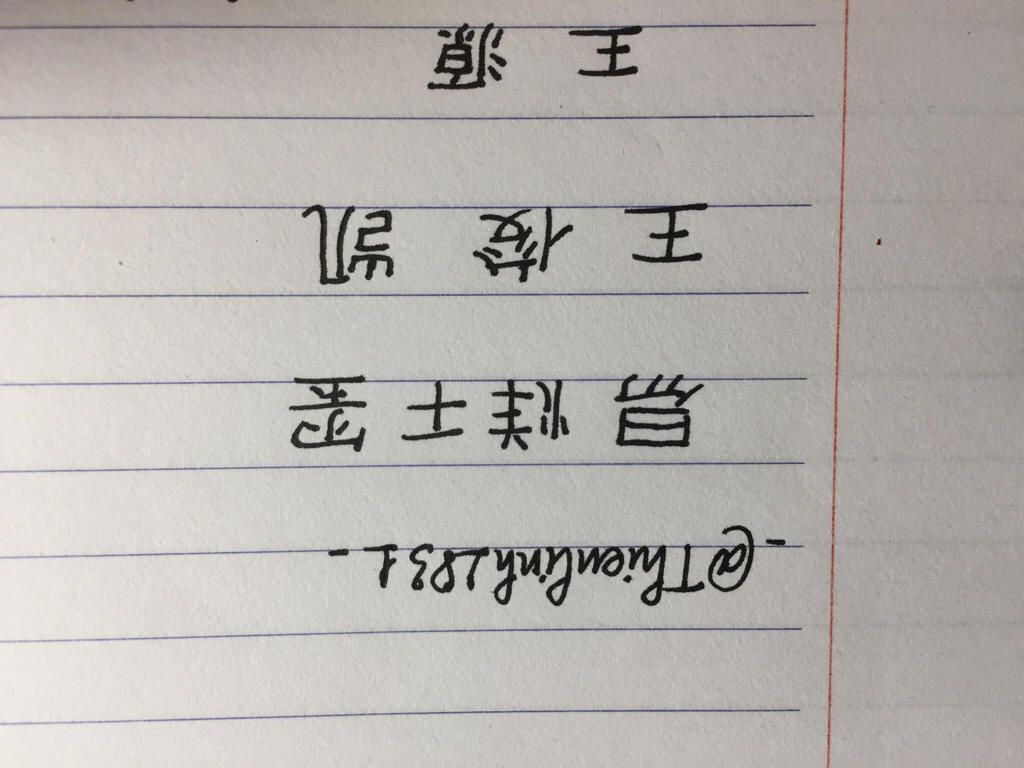 -@Thienlinh1831-
易烊千玺
王俊凯
王源